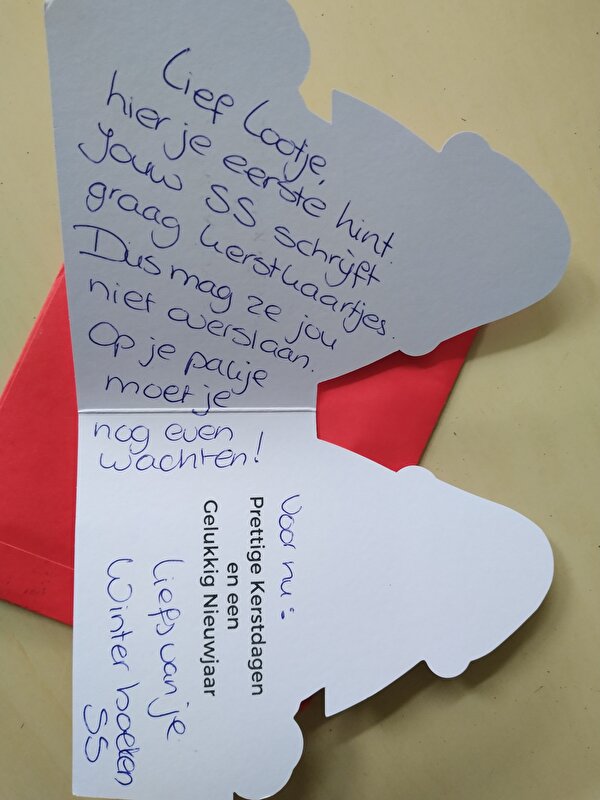 Lief Lootje,
hier je eerste hint.
Jouw SS schrijft
graag kerstkaartjes.
Dus mag ze jou
niet overslaan.
Op je pakje
moet je
nog even
wachten!
Voor nu:
Prettige Kerstdagen
en een
Gelukkig Nieuwjaar
Liefs van je
Winter boeken
SS